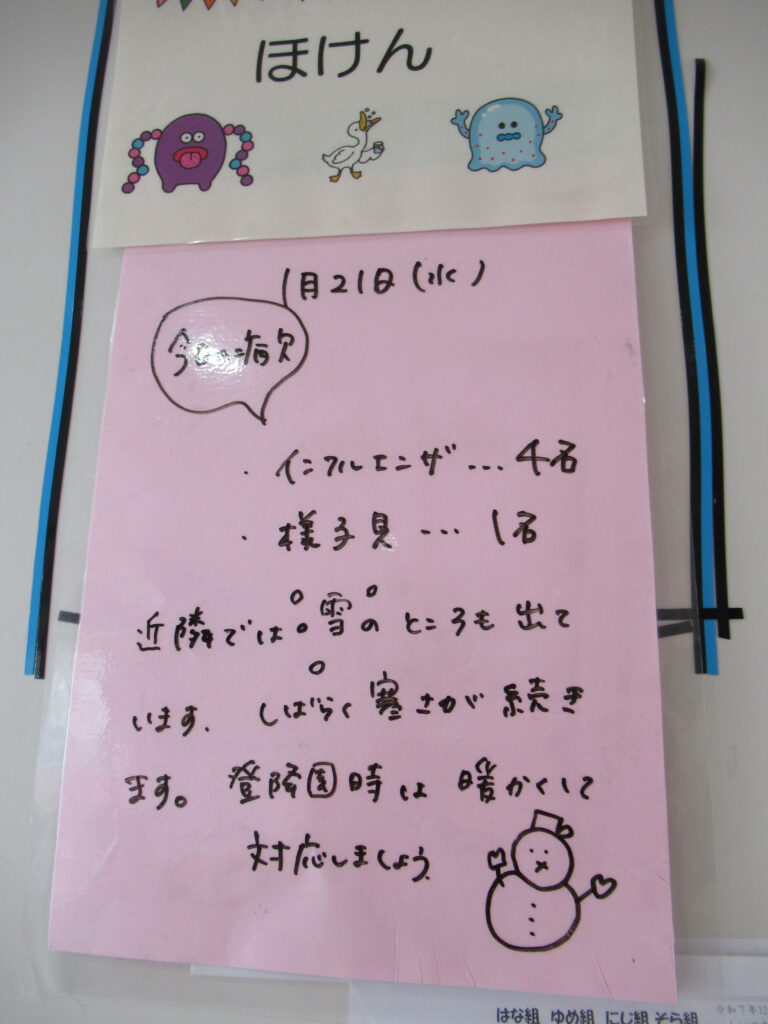 ほけん
1月21日(水)
今日の病欠
・インフルエンザ...4名
・様子見...1名
近隣では雪のところも出て
います。しばらく寒さが続き
ます。登降園時は暖かくして
対応しましょう。
令和7年12
はな組 ゆめ組 にじ組 そら組